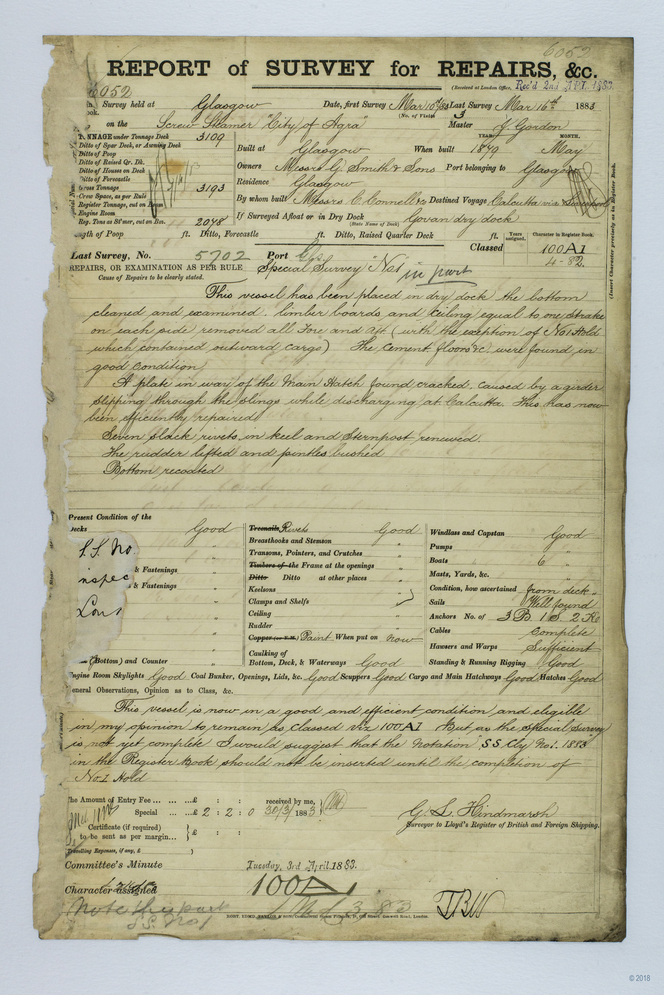 6052
REPORT of SURVEY for REPAIRS, &c.
(Received at London Office, Rec'd 2nd APL. 1883
6052
Survey held at Glasgow Date, first Survey Mar 10th 83 Last Survey Mar 16th 1883
(No. of Visits 3
on the Screw Steamer "City of Agra" Master J Gordon
TONNAGE under Tonnage Deck 3109
Ditto of Spar Deck, or Awning Deck
Ditto of Poop
Ditto of Raised Qr. Dk.
Ditto of Houses on Deck
Ditto of Forecastle
Gross Tonnage 3193
Crew Space, as per Rule
Register Tonnage, cut on
Engine Room
Reg. Tons as St'mer, cut on 2048
YEAR. MONTH.
Built at Glasgow When built 1879 May
Owners Messrs G. Smith & Sons Port belonging to Glasgow
Residence Glasgow
By whom built Messrs C. Connell & Co Destined Voyage Calcutta via
If Surveyed Afloat or in Dry Dock Govan dry dock
(State Name of Dock)
Length of Poop ft. Ditto, Forecastle ft. Ditto, Raised Quarter Deck ft.
Years assigned. Character in Register Book.
Classed 100A1
4-82
(Insert Character precisely as in Register Book.
Last Survey, No. 5702 Port Gls
REPAIRS, OR EXAMINATION AS PER RULE Special Survey "No1 in part
Cause of Repairs to be clearly stated.
This vessel has been placed in dry dock the bottom
cleaned and examined. limber boards and ceiling equal to one strake
on each side removed all Fore and Aft (with the exception of No1 Hold
which contained outward cargo) The cement floors &c. were found in
good Condition
A plate in way of the Main Hatch found cracked, caused by a girder
slipping through the slings while discharging at Calcutta This has now
been efficiently repaired
Seven slack rivets in keel and sternpost renewed.
The rudder lifted and pintles bushed
Bottom recoated
Present Condition of the
Decks Good
S.S. No
inspec
Lon
& Fastenings "
& Fastenings "
(Bottom) and Counter "
Treenails Rivets Good
Breasthooks and Stemson "
Transoms, Pointers, and Crutches "
Timbers of the Frame at the openings "
Ditto Ditto at other places "
Keelsons "
Clamps and Shelfs "
Ceiling "
Rudder "
Copper (or Y.M.) Paint When put on now
Caulking of
Bottom, Deck, & Waterways Good
Windlass and Capstan Good
Pumps "
Boats 6 "
Masts, Yards, &c. "
Condition, how ascertained from deck
Sails Well found
Anchors No. of 3 B 1 S. 2 Ke
Cables Complete
Hawsers and Warps Sufficient
Standing & Running Rigging Good
Engine Room Skylights Good Coal Bunker, Openings, Lids, &c. Good Scuppers Good Cargo and Main Hatchways Good Hatches Good
General Observations, Opinion as to Class, &c.
This vessel is now in a good and efficient condition and eligible
in my opinion to remain as classed viz 100A1 But as the special survey
is not yet complete I would suggest that the notation "S.S. Cly No1. 1883
in the Register Book should not be inserted until the completion of
No.1 Hold
The Amount of Entry Fee £ : : received by me,
Special £ 2 : 2 : 0 30/3/1883
Certificate (if required)
to be sent as per margin £ : :
Travelling Expenses, if any, £
G. S. Hindmarsh
Surveyor to Lloyd's Register of British and Foreign Shipping.
Committee's Minute Tuesday, 3rd April, 1883.
Character assigned 100A1
LMC 3 83
Note this part
S.S. No1
JBW
© 2018